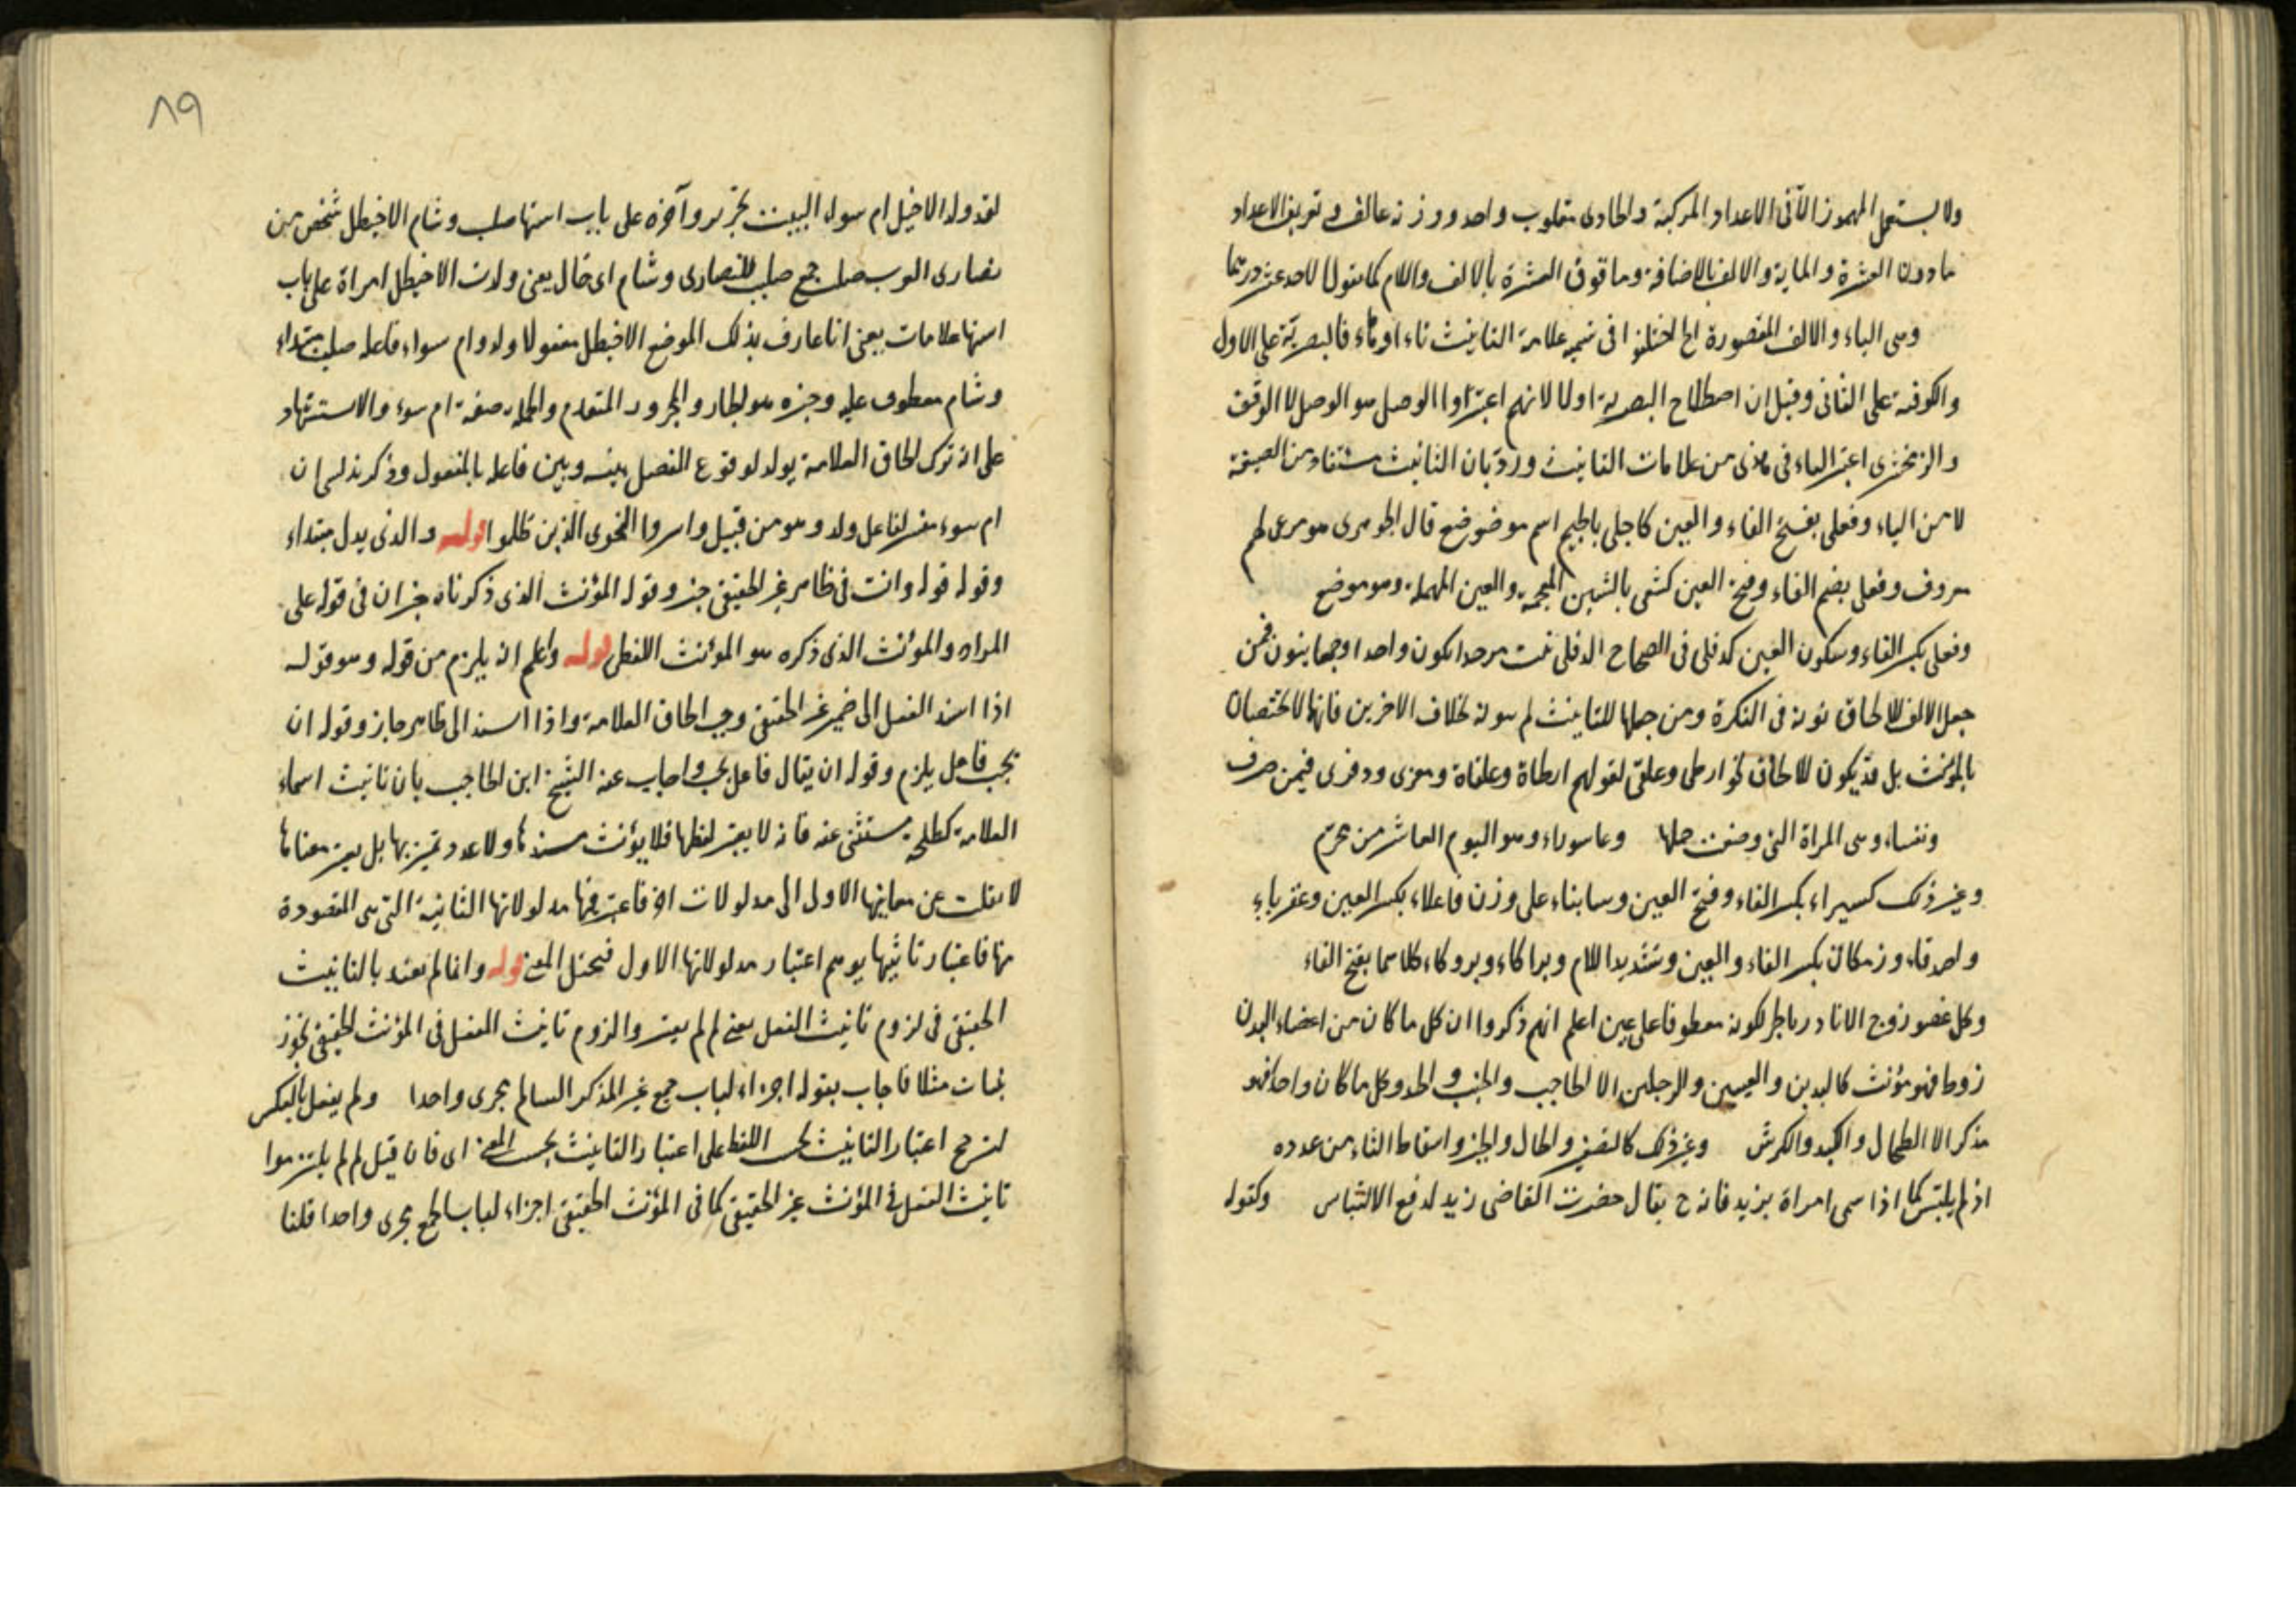 ولا يستعمل المهموز الا في الاعداد المركبة والحادى مقلوب واحد ووزنه عالف وتعريف الاعداد
مادون العشرة والماية والالف بالاضافة وما فوق العشرة بالالف واللام كما تقول الاحد عشر درهما
وهى الياء والالف المقصورة الخ اختلفوا فى علامة التانيث تاء او هاء فالبصرية على الاول
والكوفية على الثانى وقيل ان اصطلاح البصرية اولا لانهم اعتبروا الوصل هو الوصل لا الوقف
والزمخشرى اعتبر الياء فى هذى من علامات التانيث ورد بان التانيث مستفاد من الصيغة
لا من الياء وفعلى بفتح الفاء والعين كاجلى بالجيم اسم موضع قال الجوهرى هو مرعى لهم
معروف وفعلى بضم الفاء وفتح العين كشعى بالشين المعجمة والعين المهملة وهو موضع
وفعلى بكسر الفاء وسكون العين كدفلى فى الصحاح الدفلى نبت مر يكون واحدا وجمعا ينون فمن
جعل الالف للالحاق نونه فى النكرة ومن جعلها للتانيث لم ينونه بخلاف الاخرين فانها لا تختصان
بالمؤنث بل قد يكون للالحاق نحو ارطى وعلقى لقولهم ارطاة وعلقاة ومعزى ودفرى فيمن صرف
ونفساء وهى المراة التى وضعت حملها وعاشوراء وهو اليوم العاشر من محرم
وغير ذلك كسيراء بكسر الفاء وفتح العين وسابياء على وزن فاعلاء بكسر العين وعقرباء
واصدقاء وزمكان بكسر الفاء والعين وتشديد اللام وبراكاء وبروكاء كلاهما بفتح الفاء
وكل عضو زوج الا نادر بالجر لكونه معطوفا على عين اعلم انهم ذكروا ان كل ما كان من اعضاء البدن
زوجا فهو مؤنث كاليدين والعينين والرجلين الا الحاجب والجنب والخد وكل ما كان واحدا فهو
مذكر الا الطحال والكبد والكرش وغير ذلك واسقاط التاء من عدده
اذ لم يلتبس كما اذا سمى امراة بزيد فانه ح يقال حضرت القاضى زيد لدفع الالتباس وكقوله
لقد ولد الاخيطل ام سوء البيت وآخره على باب استها صلب وشام الاخيطل شخص من
نصارى العرب صلب جمع صليب للنصارى وشام اى خال يعنى ولدت الاخيطل امراة على باب
استها علامات يعنى انا عارف بذلك الموضع الاخيطل مفعول ولد وام سواء فاعله صلب مبتداء
وشام معطوف عليه وخبره هو الجار والمجرور المتقدم والجملة صفة ام سوء والاستشهاد
على ان ترك الحاق العلامة بولد لوقوع الفصل بينه وبين فاعله بالمفعول وذكر ان
ام سوء فاعل ولد وهو من قبيل واسروا النجوى الذين ظلموا قوله والذى يدل مبتداء
وقوله قوله وانت فى ظاهر غير الحقيقى خبره وقوله المؤنث الذى ذكرناه خبر ان فى قوله على
المراد والمؤنث الذى ذكره هو المؤنث اللفظى قوله واعلم انه يلزم من قوله وهو قوله
اذا اسند الفعل الى ضمير غير الحقيقى وجب الحاق العلامة واذا اسند الى ظاهر جاز وقوله ان
يجب فاعل يلزم وقوله ان يقال فاعل يجب واجاب عنه الشيخ ابن الحاجب بان تانيث اسماء
العلامة كطلحة مستثنى عنه فانه لا يعتبر لفظها فلا يؤنث مسندها ولا عدد تميز بها بل يعتبر معناها
لانقلت عن معانيها الاول الى مدلولات اخر فاعتبر فيها مدلولاتها الثانية التى هى المقصودة
منها فاعتبار تانيثها يوهم اعتبار مدلولاتها الاول فيختل المعنى قوله وانما لم يعتد بالتانيث
الحقيقى فى لزوم تانيث الفعل يعنى لم لم يعتبروا لزوم تانيث الفعل فى المؤنث الحقيقى نحو
بنات مثلا فاجاب بقوله اجراء لباب جمع غير المذكر السالم مجرى واحدا ولم يفعل بالعكس
لترجح اعتبار التانيث بحسب اللفظ على اعتبار التانيث بحسب المعنى اى فان قيل لم لم يلتزموا
تانيث الفعل فى المؤنث غير الحقيقى كما فى المؤنث الحقيقى اجراء لباب الجمع مجرى واحدا قلنا
٨٩